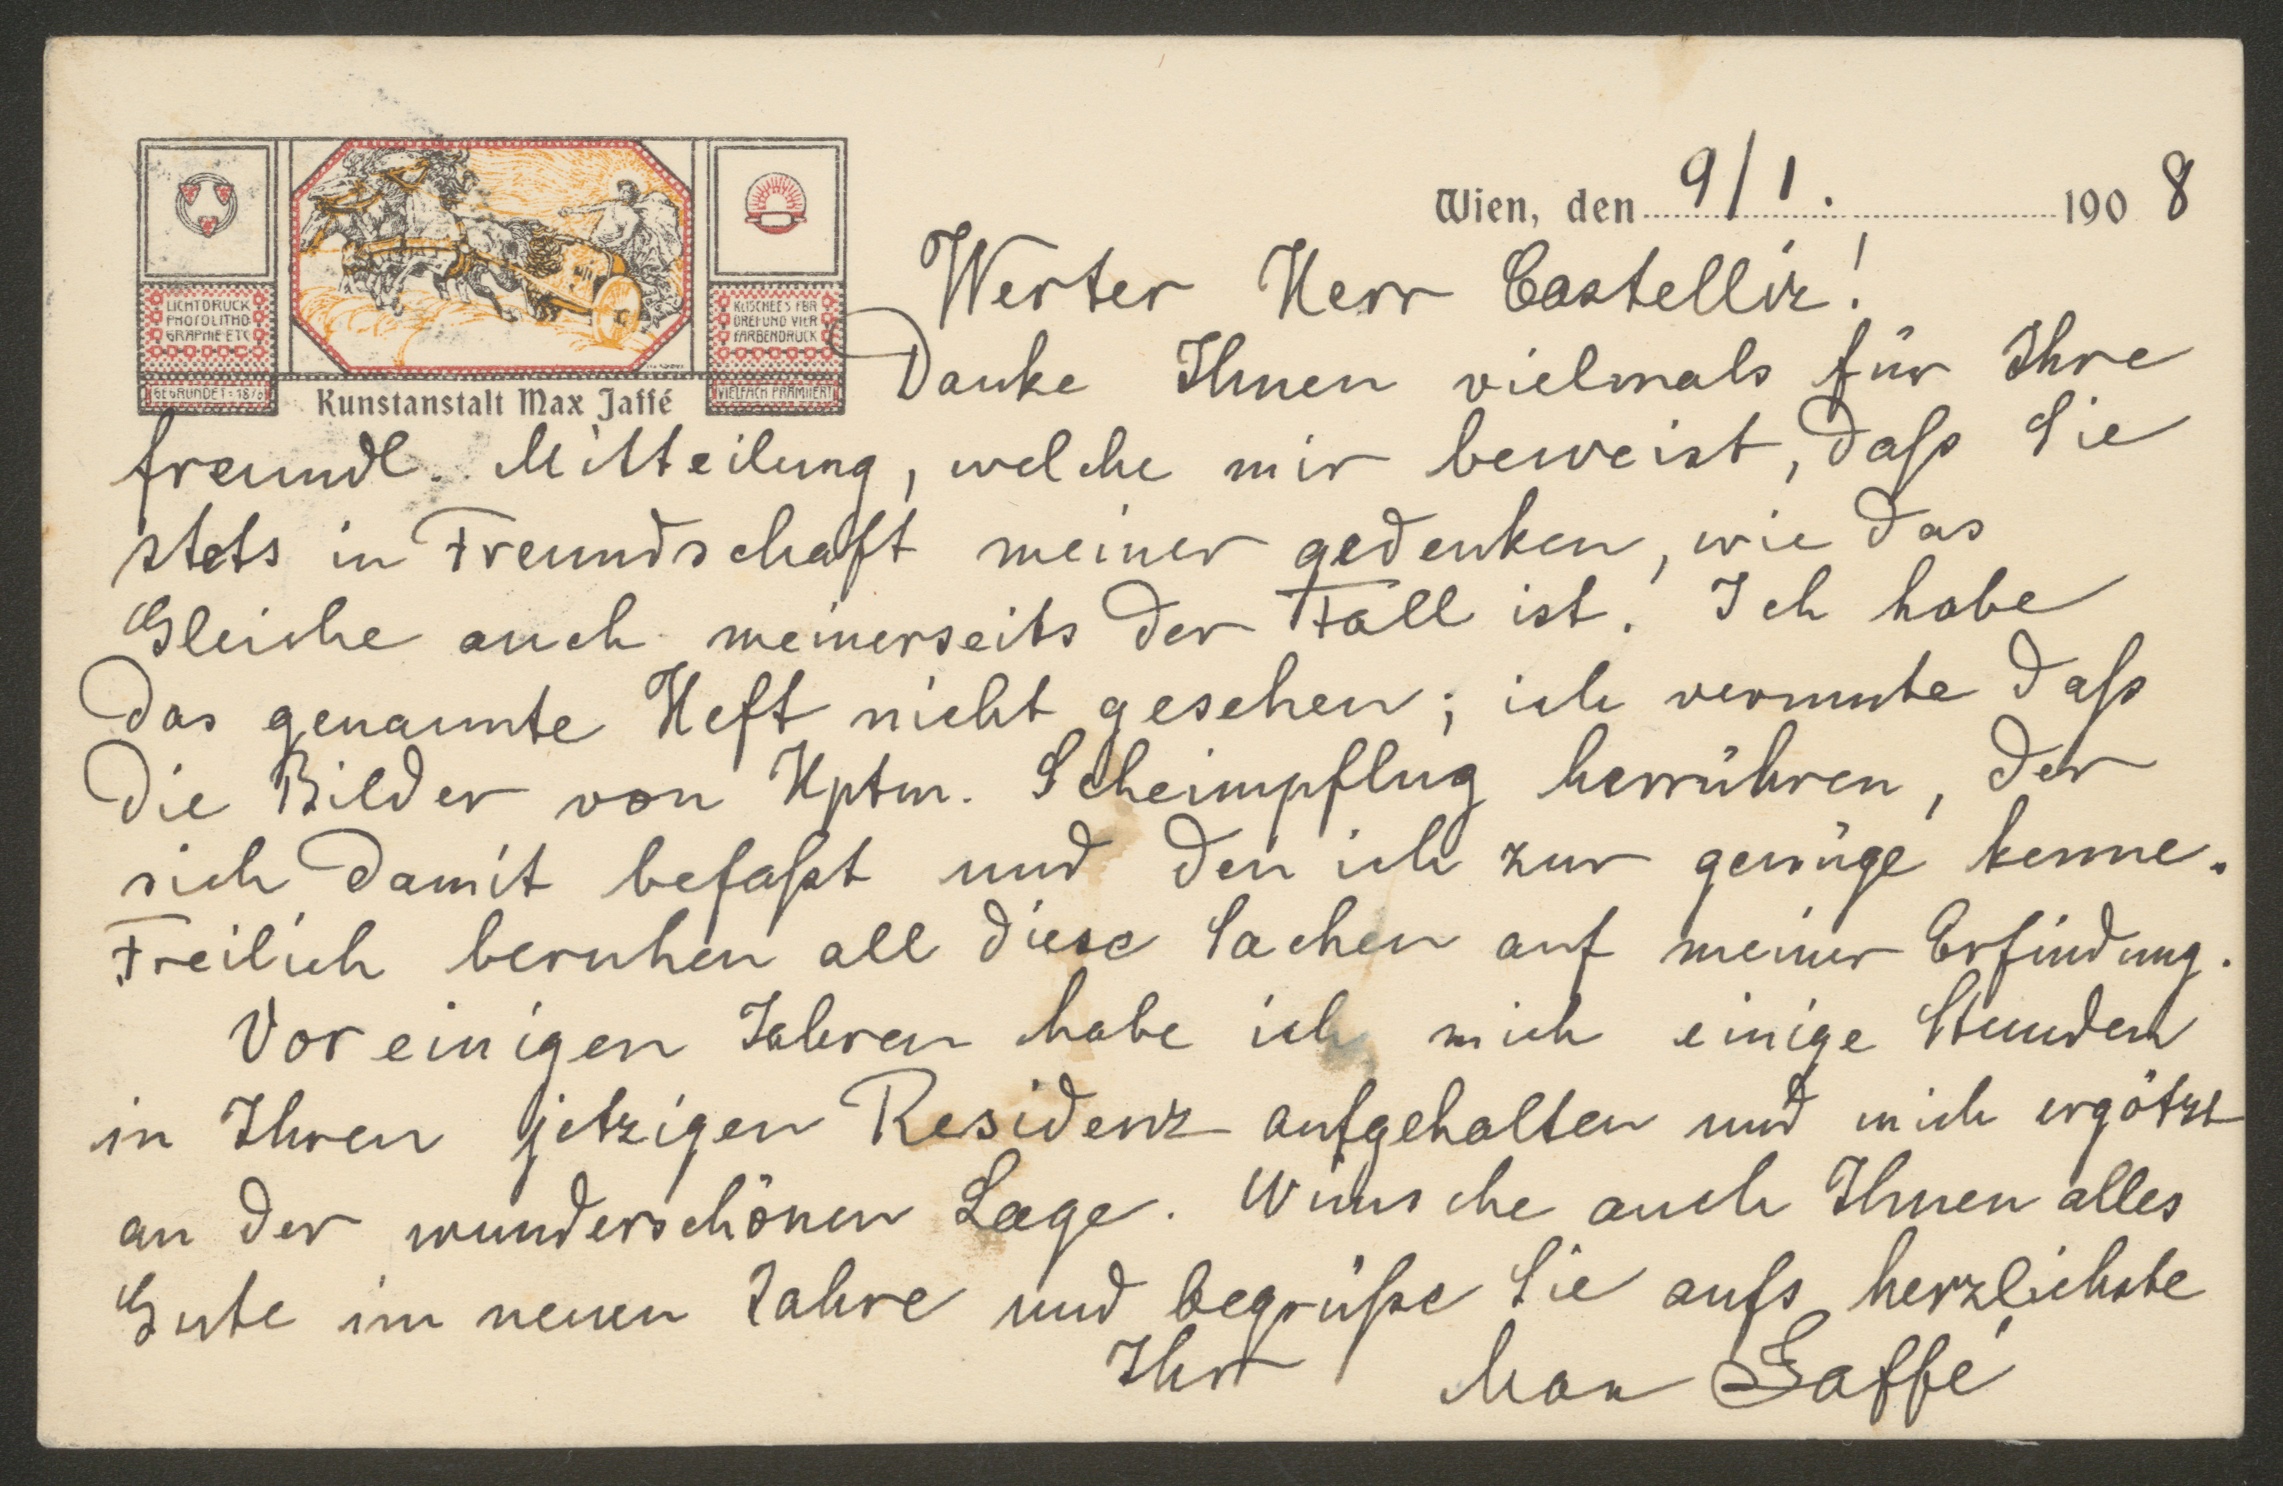 Wien, den 9/1. 1908
LICHTDRUCK
PHOTOLITHO-
GRAPHIE ETC
GEGRÜNDET: 1876
Kunstanstalt Max Jaffé
KLISCHEES FÜR
DREI-UND VIER
FARBENDRUCK
VIELFACH PRÄMIIERT
Werter Herr Castelliz!
Danke Ihnen vielmals für Ihre
freundl. Mitteilung, welche mir beweist, daß Sie
stets in Freundschaft meiner gedenken, wie das
Gleiche auch meinerseits der Fall ist. Ich habe
das genannte Heft nicht gesehen; ich vermute daß
die Bilder von Hptm. Scheimpflug herrühren, der
sich damit befaßt und den ich zur genüge kenne.
Freilich beruhen all diese Sachen auf meiner Erfindung.
Vor einigen Jahren habe ich mich einige Stunden
in Ihren jetzigen Residenz aufgehalten und mich ergötzt
an der wunderschönen Lage. Wünsche auch Ihnen alles
Gute im neuen Jahre und begrüße Sie aufs herzlichste
Ihr Max Jaffé